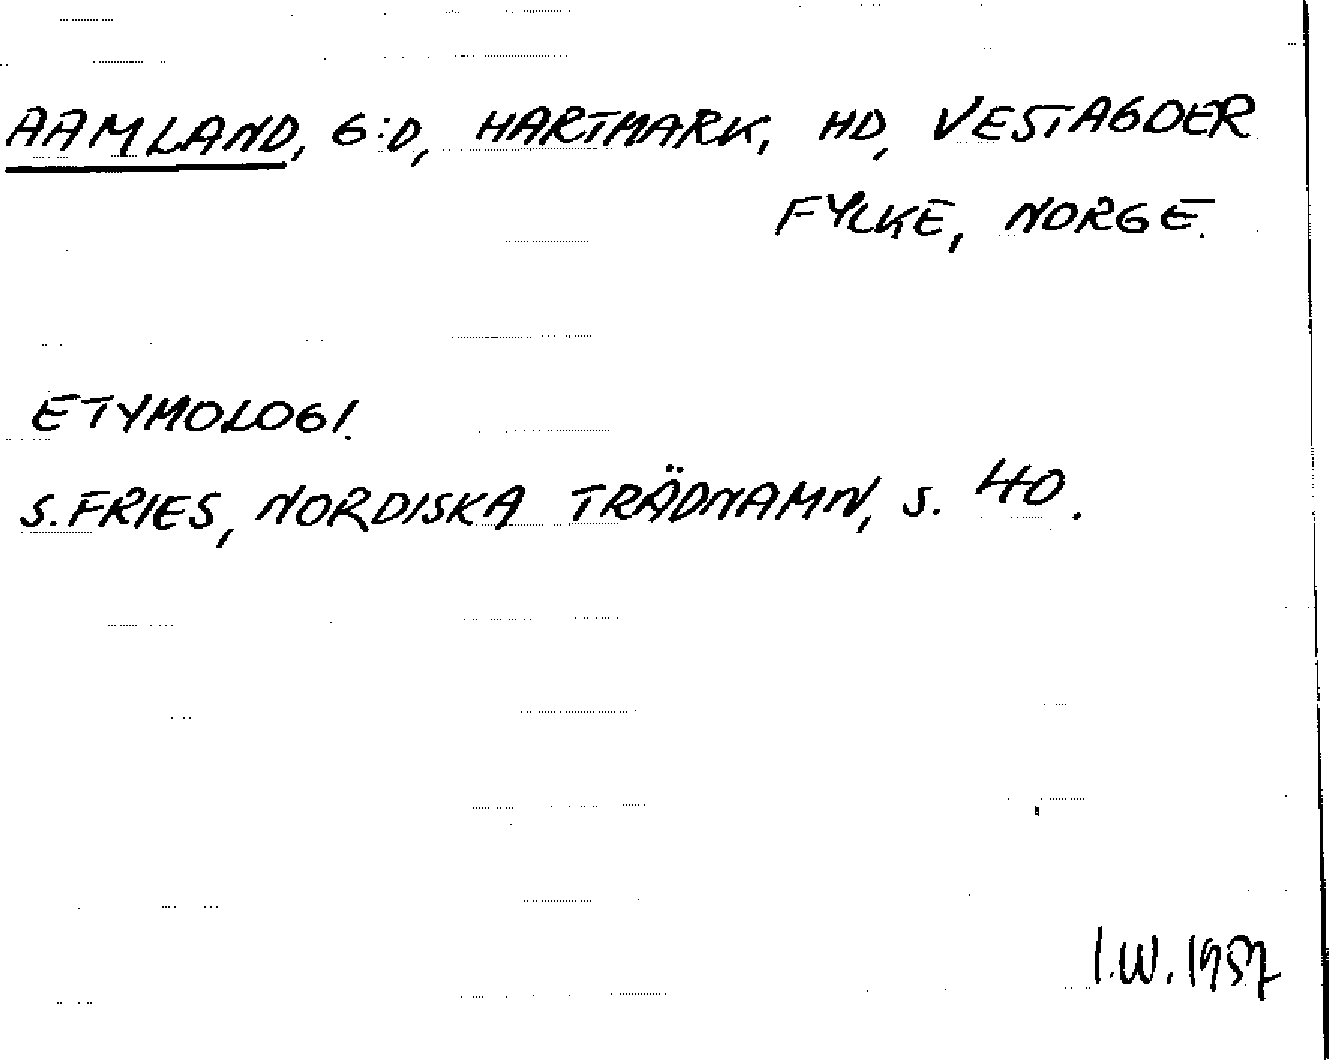 AAMLAND, G:D, HARTMARK, HD, VESTAGDER
FYLKE, NORGE.
ETYMOLOGI.
S. FRIES, NORDISKA TRÄDNAMN, S. 40.
I.W. 1957